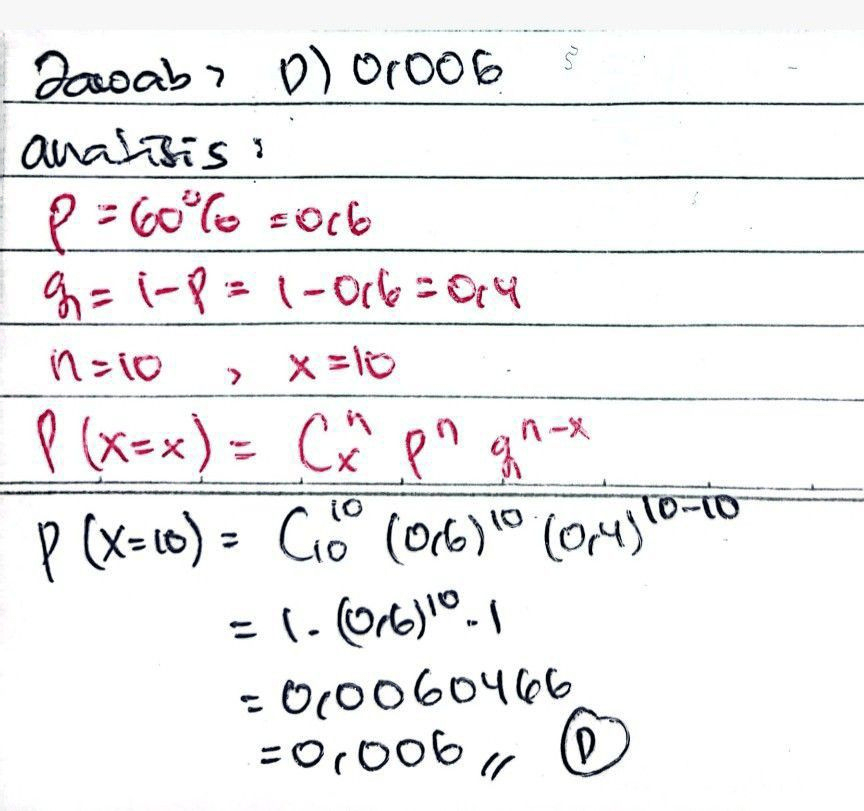 Jawab, D) 0,006
analisis :
P = 60% = 0,6
q = 1-P = 1-0,6 = 0,4
n = 10 , x = 10
P (X=x) = Cₓⁿ Pⁿ qⁿ⁻ˣ
P (X=10) = C₁₀¹⁰ (0,6)¹⁰ (0,4)¹⁰⁻¹⁰
= 1. (0,6)¹⁰. 1
= 0,0060466
= 0,006 // D